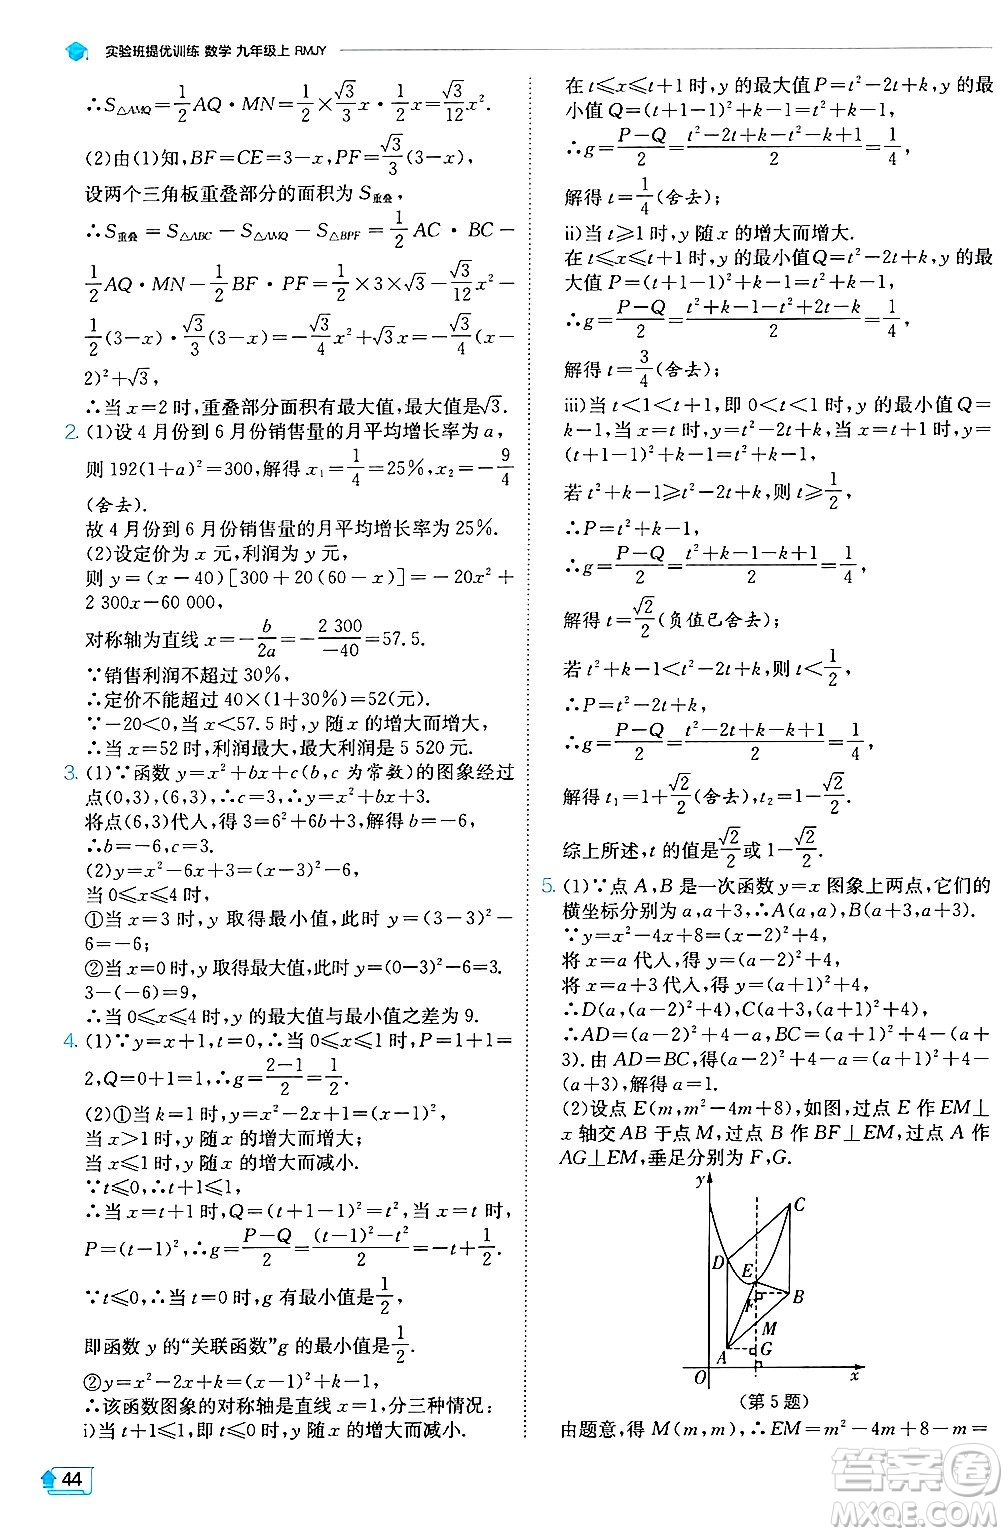 实验班提优训练 数学 九年级上 RMJY
∴S△AMQ=1/2AQ·MN=1/2×√3/3x·1/2x=√3/12x².
(2)由(1)知,BF=CE=3-x,PF=√3/3(3-x),
设两个三角板重叠部分的面积为S重叠
∴S重叠=S△ABC-S△AMQ-S△BPF=1/2AC·BC-
1/2AQ·MN-1/2BF·PF=1/2×3×√3-√3/12x²-
1/2(3-x)·√3/3(3-x)=-√3/4x²+√3x=-√3/4(x-
2)²+√3,
∴当x=2时,重叠部分面积有最大值,最大值是√3.
2. (1)设4月份到6月份销售量的月平均增长率为a,
则192(1+a)²=300,解得x₁=1/4=25%,x₂=-9/4
(舍去).
故4月份到6月份销售量的月平均增长率为25%.
(2)设定价为x元,利润为y元,
则y=(x-40)[300+20(60-x)]=-20x²+
2 300x-60 000,
对称轴为直线x=-b/2a=-2 300/-40=57.5.
∵销售利润不超过30%,
∴定价不能超过40×(1+30%)=52(元).
∵-20<0,当x<57.5时,y随x的增大而增大,
∴当x=52时,利润最大,最大利润是5 520元.
3. (1)∵函数y=x²+bx+c(b,c为常数)的图象经过
点(0,3),(6,3),∴c=3,∴y=x²+bx+3.
将点(6,3)代入,得3=6²+6b+3,解得b=-6,
∴b=-6,c=3.
(2)y=x²-6x+3=(x-3)²-6,
当0⩽x⩽4时,
①当x=3时,y取得最小值,此时y=(3-3)²-
6=-6;
②当x=0时,y取得最大值,此时y=(0-3)²-6=
3-(-6)=9.
∴当0⩽x⩽4时,y的最大值与最小值之差为9.
4. (1)∵y=x+1,t=0,∴当0⩽x⩽1时,P=1+1=
2,Q=0+1=1,∴g=2-1/2=1/2.
(2)①当k=1时,y=x²-2x+1=(x-1)²,
当x>1时,y随x的增大而增大;
当x⩽1时,y随x的增大而减小.
∵t⩽0,∴t+1⩽1,
∴当x=t+1时,Q=(t+1-1)²=t²,当x=t时,
P=(t-1)²,∴g=P-Q/2=(t-1)²-t²/2=-t+1/2.
∵t⩽0,∴当t=0时,g有最小值是1/2,
即函数y的“关联函数”g的最小值为1/2.
②∵y=x²-2x+k=(x-1)²+k-1,
∴该函数图象的对称轴是直线x=1,分三种情况:
i)当t+1⩽1,即t⩽0时,y随x的增大而减小.
在t⩽x⩽t+1时,y的最大值P=t²-2t+k,y的最
小值Q=(t+1-1)²+k-1=t²+k-1,
∴g=P-Q/2=t²-2t+k-t²-k+1/2=1/4,
解得t=1/4(舍去);
ii)当t⩾1时,y随x的增大而增大.
在t⩽x⩽t+1时,y的最小值Q=t²-2t+k,y的最
大值P=(t+1-1)²+k-1=t²+k-1,
∴g=P-Q/2=t²+k-1-t²+2t-k/2=1/4,
解得t=3/4(舍去);
iii)当t<1<t+1,即0<t<1时,y的最小值Q=
k-1,当x=t时,y=t²-2t+k,当x=t+1时,y=
(t+1-1)²+k-1=t²+k-1,
若t²+k-1⩾t²-2t+k,则t⩾1/2,
∴P=t²+k-1,
∴g=P-Q/2=t²+k-1-(k-1)/2=1/4,
解得t=√2/2(负值已舍去);
若t²+k-1<t²-2t+k,则t<1/2,
∴P=t²-2t+k,
∴g=P-Q/2=t²-2t+k-(k-1)/2=1/4,
解得t₁=1+√2/2(舍去),t₂=1-√2/2.
综上所述,t的值是√2/2或1-√2/2.
5. (1)∵点A,B是一次函数y=x图象上两点,它们的
横坐标分别为a,a+3,∴A(a,a),B(a+3,a+3).
∵y=x²-4x+8=(x-2)²+4,
将x=a代入,得y=(a-2)²+4,
将x=a+3代入,得y=(a+1)²+4,
∴D(a,(a-2)²+4),C(a+3,(a+1)²+4),
∴AD=(a-2)²+4-a,BC=(a+1)²+4-(a+
3).由AD=BC,得(a-2)²+4-a=(a+1)²+4-
(a+3),解得a=1.
(2)设点E(m,m²-4m+8),如图,过点E作EM⊥
x轴交AB于点M,过点B作BF⊥EM,过点A作
AG⊥EM,垂足分别为F,G.
y
C
D
E
F
B
M
A
G
O
x
(第5题)
由题意,得M(m,m),∴EM=m²-4m+8-m=
44
答案圈
MXQE.COM